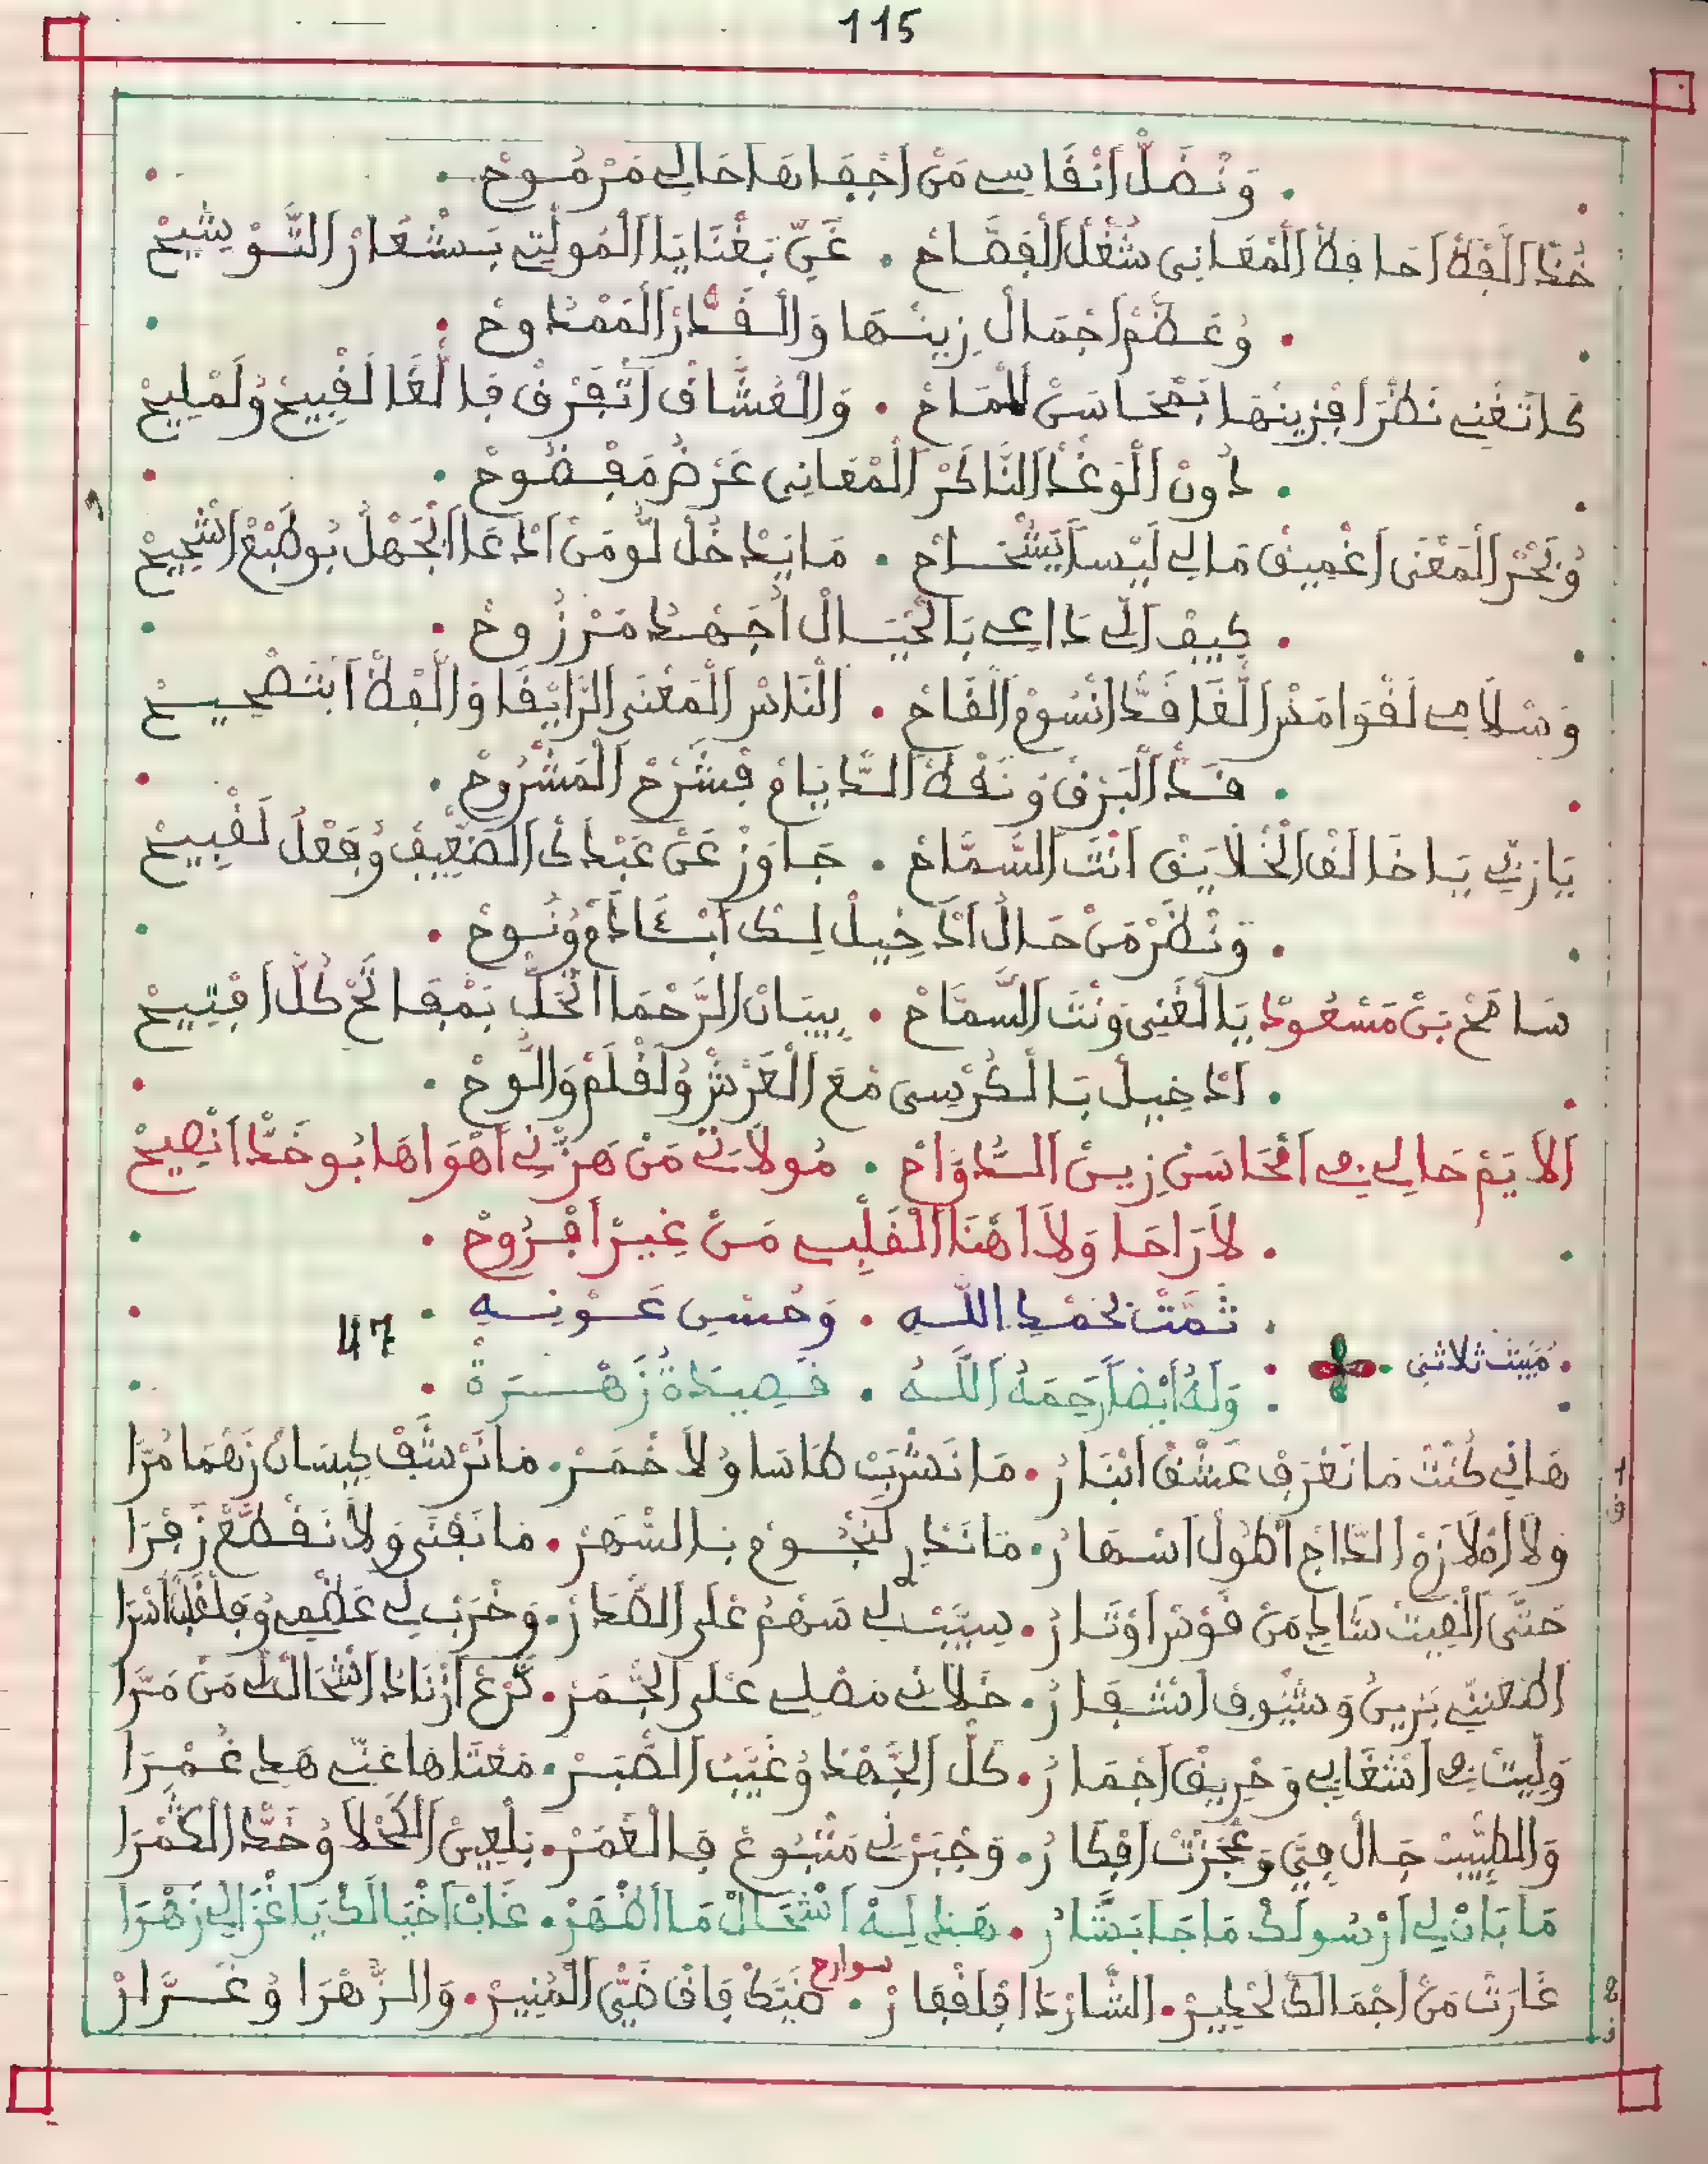 115
وَنْضَلّْ اَنْفَاسِي مَنْ اجْفَاهَا حَالِي مَرْمُوحْ
خُدْ اللَّفْظْ احَافظْ الْمْعَانِي شُغْلْ الْفصَّاحْ . غَنِّي بَغْنَايَا الْمُولْتِي بَسْعَارْ التَّوْشِيحْ
وُعَظَّمْ اجْمَالْ زِينْهَا وَالْقَدّْرْ الْمَمْدُوحْ
كَاتَغْنِي نَظْرَا فْزِينْهَا بَمْحَاسَنْ الْمَاحْ . وَالْعُشَّاقْ اتْفَرْقْ فَالْغَا لَقْبِيحْ وُلَمْلِيحْ
دُونْ الْوَغْدْ النَّاكَرْ الْمْعَانِي عَرْضُ مَفْضُوحْ
وُبَحْرْ الْمَعْنَى اغْمِيقْ مَالِي لَيْسَ ايَشْحَاحْ . مَا يَدْخُلْ لُّو مَنْ ادْعَا الْجَهْلْ بُوطَبْعْ اشْحِيحْ
كِيفْ الِّي دَاعِي بَالْخْيَالْ اجَهْدُ مَرْزُوحْ
وَسْلَامِي لَقْوَامَدْ الْغَا قَدّْ انْسُومْ الْفَاحْ . النَّاسْ الْمَعْنَى الرَّايْقَا وَاللَّفْظْ ابْتَصْحِيحْ
قَدّْ الْبَرْقْ وَنَقْطْ الدّْيَامْ فْشَرْحْ الْمَشْرُوحْ
يَارَبِّي يَاخَالَقْ الْخْلَايَقْ انْتَ السَّمَّاحْ . جَاوَزْ عَنْ عَبْدَكْ الضْعِيفْ وُفَعْلُ لَقْبِيحْ
وَنْظَرْ مَنْ حَالْ ادْخِيلْ لِكْ ابْئَادَمْ وُنُوحْ
سَامَحْ بَنْ مَسْعُودْ يَالْغْنِي وَنْتَ السَّمَّاحْ . بِيبَانْ الرَّحْمَا انْحَلّْ بَمْفَاتَحْ كُلّْ افْتِيحْ
ادْخِيلْ بَالْكُرْسِي مْعَ الْعَرْشْ وُلَقْلَمْ وَاللُّوحْ
الَايَمْ حَالِي فِي امْحَاسَنْ زِينْ الدُّوَّاحْ . مُولَاتِي مَنْ هَزّْنِي اهْوَاهَا بُوخَدّْ انْصِيحْ
لَارَاحَا وَلَا اهْنَا الْقَلْبِي مَنْ غِيرْ افْرُوحْ
تَمَّتْ بِحَمْدِ اللَّهِ . وَحُسْنِ عَوْنِهِ
47
مَبيَّتْ ثلاثي
وَلَهُ أَيْضاً رَحِمَهُ اللَّهُ . قَصِيدَةُ زَهْرَة
هَانِي كُنْتْ مَا نَعْرَفْ عَشْقْ ابْنَارُ . مَا نَشْرَبْ كَاسَا وُلَا خْمَرْ . مَا نَرْشَفْ كِيسَانْ رَهْمَا مُرَّا
وَلَا اهْلَازَمْ الدَّاجْ اطُولْ اسْهَارُ . مَا نَدْرِ لَنْجُومْ بَالسّْهَرْ . مَا نَفْنَى وَلَا نَقْطَعْ زَفْرَا
حَتَّى الْقِيتْ شَادِ مَنْ قَوْسْ اوْتَارُ . سِيَّبْ لِي سَهْمُ عْلَى الصْدَرْ . وَخْرَبْ لِي عَظْمِي وُقَلْبْ اسْرَا
اطْعَنِّي بَزِينُ وَسْيُوفْ اشْفَارُ . خَلَّانِي مَصْلِي عْلَى الْجْمَرْ . تَّرْعْ ازْنَادْ اشْحَالْ لِي مَنْ مَرَّا
وَلِيتْ فِي اشْغَابِي وَحْرِيقْ اجْمَارُ . كَلّْ الْجَهْدْ وُغْيَبْ الصّْبَرْ . مَعْتَاهَا عَنِّي هَدِي غُمْرَا
وَالطّْبِيبْ حَالْ فِيَّ وَعْجَزْتْ افْكَارُ . وَخْبَرْنِي مَشْبُوعْ فَالْعْمَرْ . بَلْعِينْ الْكَحْلَا وُخَدّْ الْكَمْرَا
مَا بَانْ لِي ارْسُولَكْ مَا جَا بَشَّارُ . هَدِي لِهْ اشْحَالْ مَا اظْهَرْ . غَابْ اخْيَالَكْ يَا غْزَالِي زَهْرَا
سوارح
غَارَتْ مَنْ اجْمَالَكْ لَحْطِيرْ . الشَّارْدَا فَلَقْفَارْ . ضَيَّكْ فَاقْ ضَيّْ الْمُنِيرْ . وَالزَّهْرَا وُغَرَّارْ